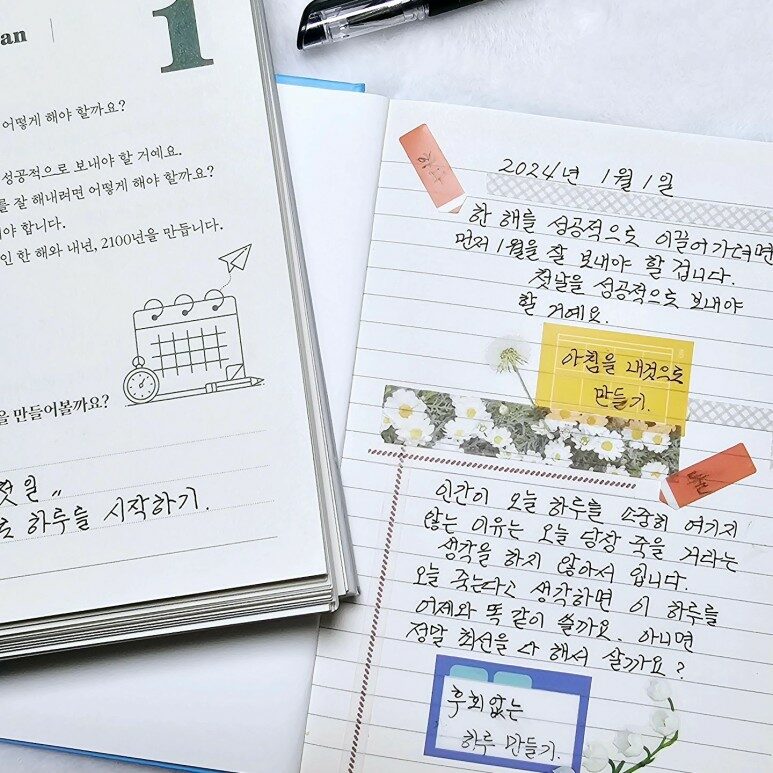 an
1
어떻게 해야 할까요?
성공적으로 보내야 할 거예요.
를 잘 해내려면 어떻게 해야 할까요?
야 합니다.
인 한 해와 내년, 2100년을 만듭니다.
을 만들어볼까요?
첫 일 〃
로 하루를 시작하기.
2024년 1월 1일
한 해를 성공적으로 이끌어가려면
먼저 1월을 잘 보내야 할 겁니다.
첫날을 성공적으로 보내야
할 거예요.
아침을 내것으로
만들기.
인간이 오늘 하루를 소중히 여기지
않는 이유는 오늘 당장 죽을 거라는
생각을 하지 않아서 입니다.
오늘 죽는다고 생각하면 이 하루를
어제와 똑 같이 쓸까요. 아니면
정말 최선을 다 해서 살까요?
후회없는
하루 만들기.